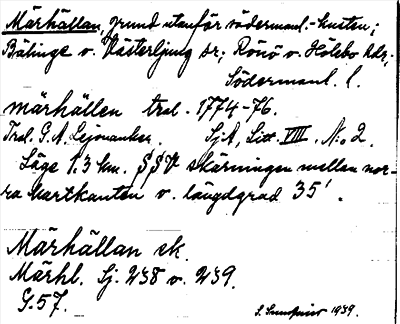 Märhällan, grund utanför södermanl.-kusten;
Bälinge o. Västerljung sr; Rönö o. Hölebo hdr;
Södermanl. l.
märhällen trol. 1774-76.
Trol. G. A. Lejonanker. SjA, Litt. VIII, No. 2.
Läge 1.3 km. SSV skärningen mellan nor-
ra kartkanten o. längdgrad 35'.
Märhällan sk.
Märhl. Sj. 238 o. 239.
G. 57.
1939.